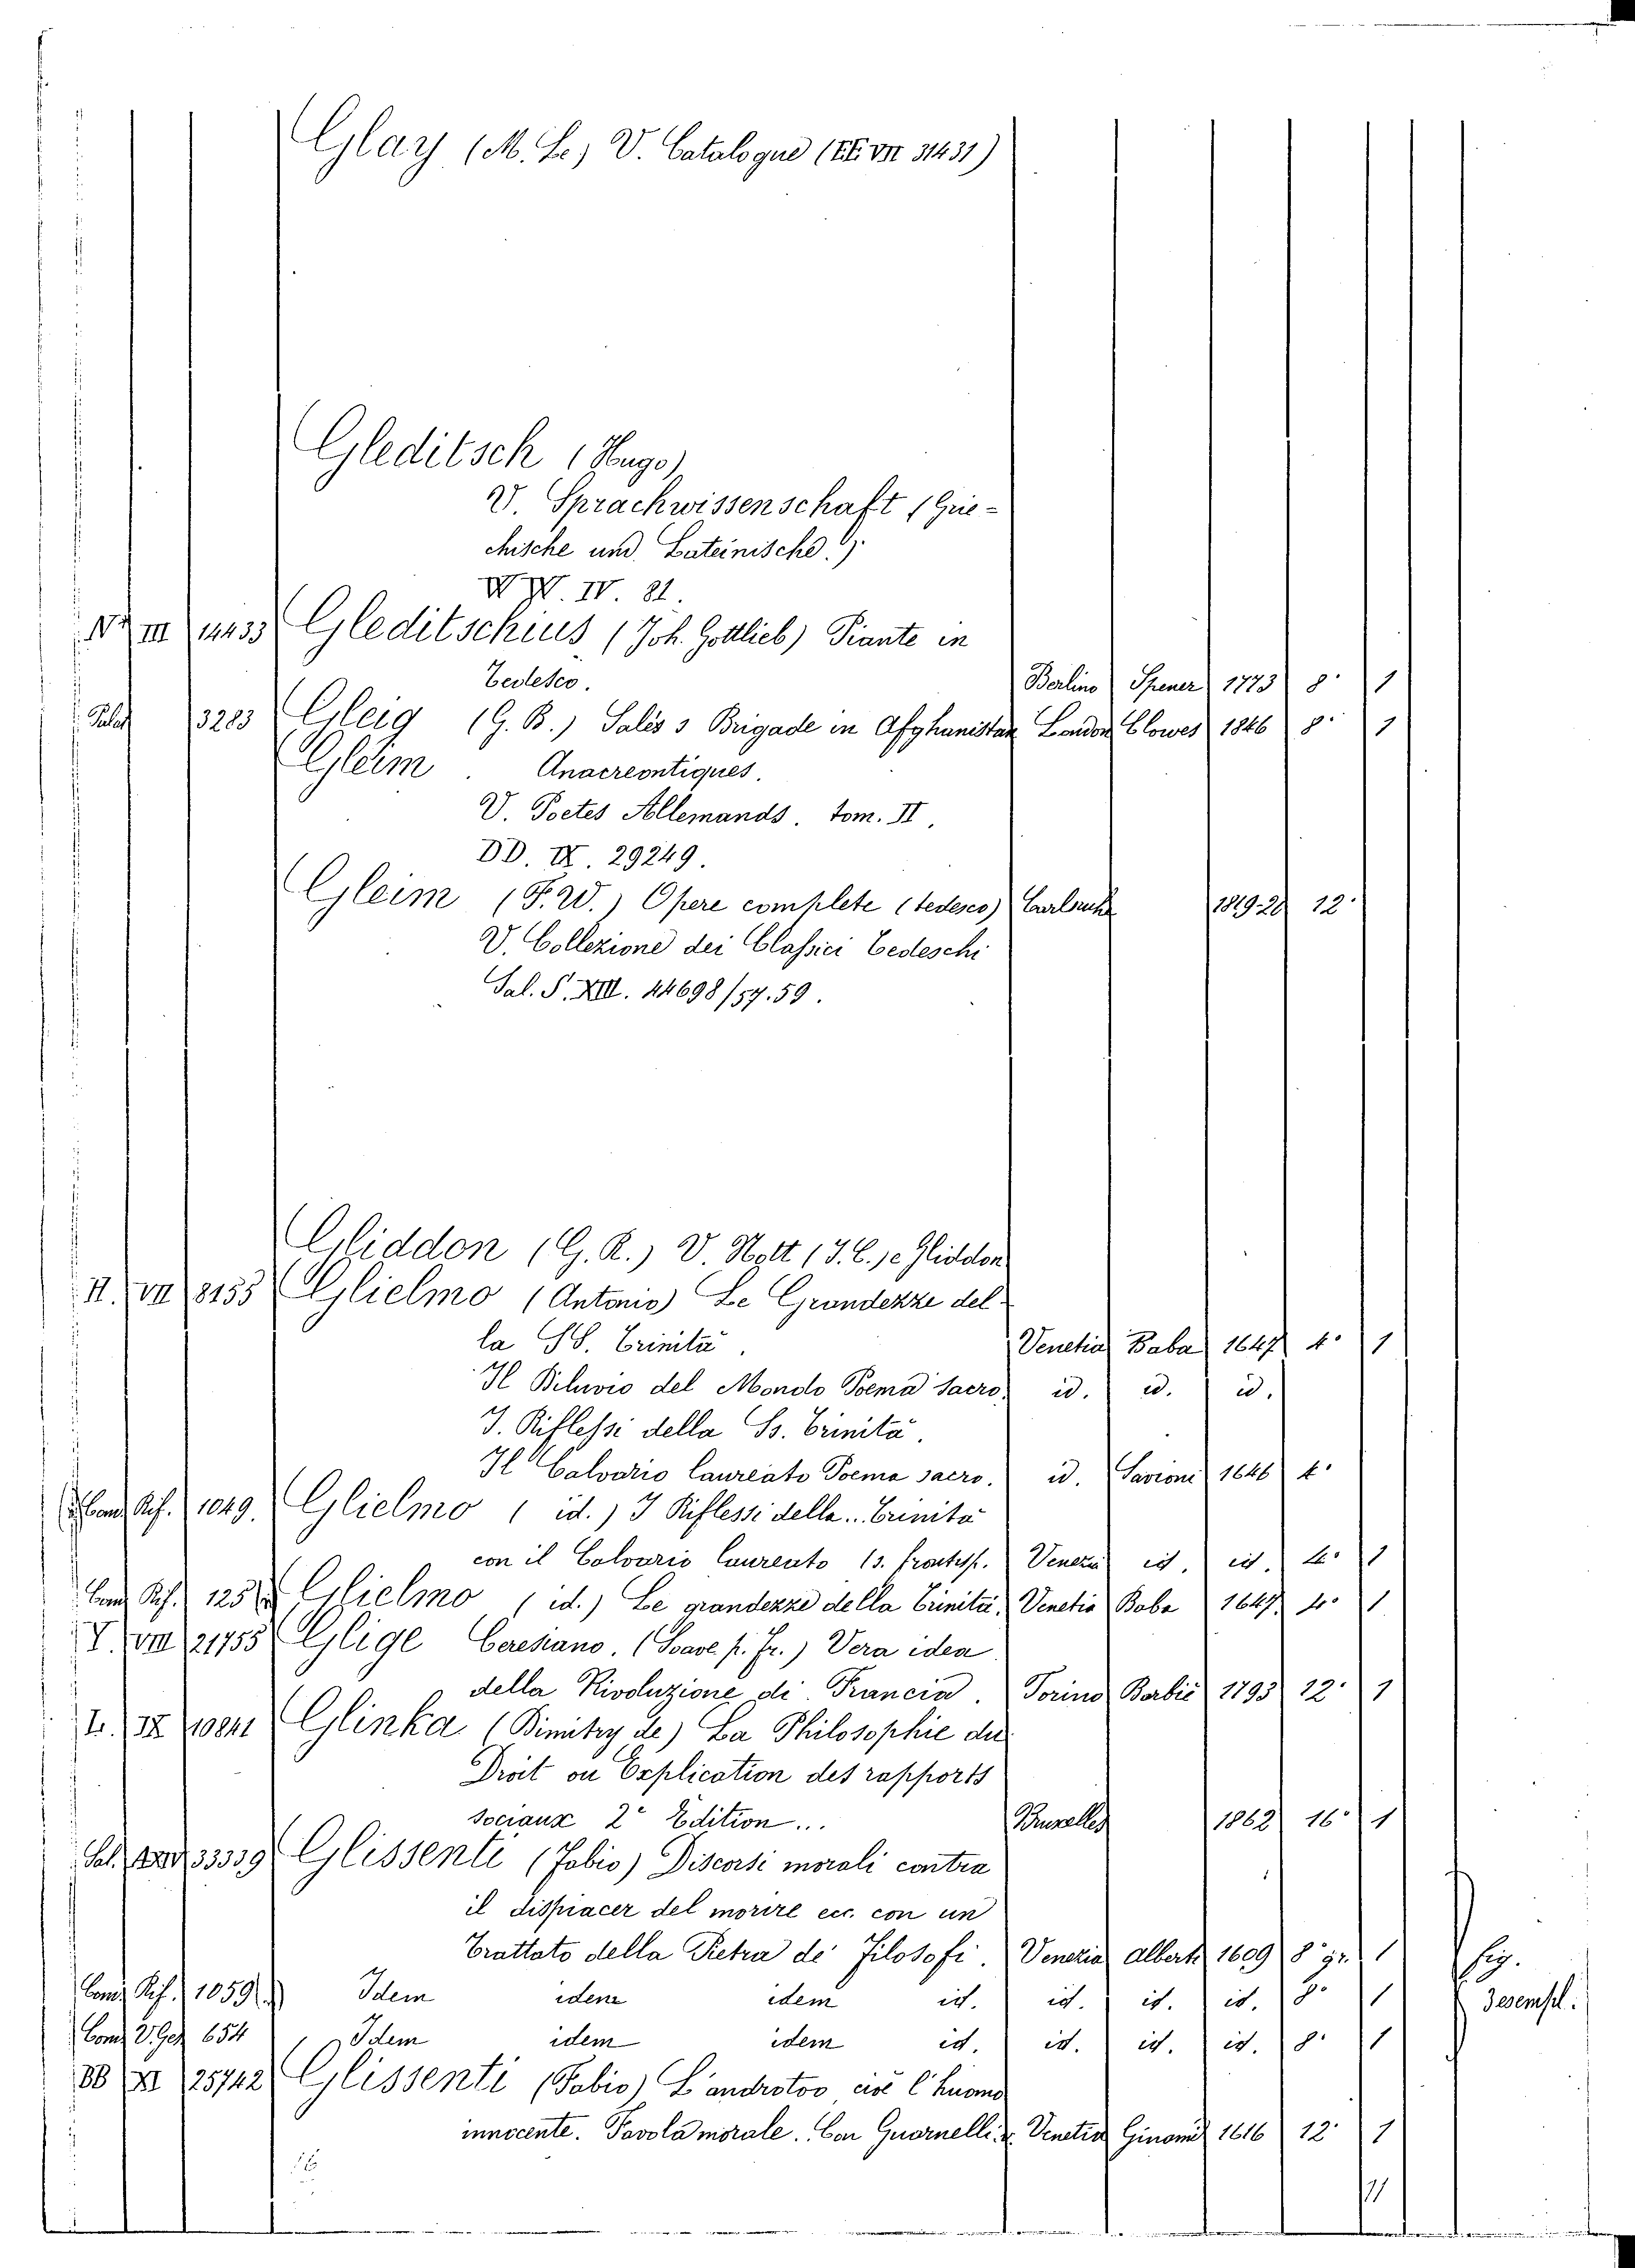 Glay (M. Le) V. Catalogue (EE VII 31431)
Gleditsch (Hugo)
V. Sprachwissenschaft (Grie-
chische und Lateinische).
WW. IV. 81.
III 14433 Gleditschius (Joh. Gottlieb) Piante in
Tedesco. Berlino Spener 1773 8° 1
Palat 3283 Gleig (G. B.) Sales's Brigade in Afghanistan London Clowes 1846 8° 1
Gleim. Anacreontiques.
V. Poetes Allemands. tom. II.
DD. IX. 29249.
Gleim (F. W.) Opere complete (tedesco) Carlsruhe 1819-20 12°
V. Collezione dei Classici Tedeschi
Sal. S. XIII. 44698/57.59.
Gliddon (G. R.) V. Nott (J. C.) e Gliddon
II. VII 8155 Glielmo (Antonio) Le Grandezze del-
la SS. Trinità. Venetia Baba 1647 4° 1
Il Diluvio del Mondo Poema sacro. id. id. id.
I. Riflessi della Ss. Trinità.
Il Calvario laureato Poema sacro. id. Savioni 1646 4°
Rif. 1049. Glielmo (id.) I Riflessi della.. Trinità
con il Calvario laureato (s. frontesp. Venezia id. id. 4° 1
Com. Rif. 125 Glielmo (id.) Le grandezze della Trinità. Venetia Baba 1647 4° 1
V. VIII 21755 Glige Ceresiano. (Soave p. Fr.) Vera idea
della Rivoluzione di Francia. Torino Barbié 1793 12° 1
L. IX 10841 Glinka (Dimitry de) La Philosophie du
Droit ou Explication des rapports
sociaux 2e Edition... Bruxelles 1862 16° 1
Sal. 33339 Glissenti (Fabio) Discorsi morali contra
il dispiacer del morire ecc. con un
Trattato della Pietra de' Filosofi. Venezia Alberti 1609 8° gr. 1 fig.
Com. Rif. 1059 Idem idem idem id. id. id. id. 8° 1 3 esempl.
Com. V. Ges 654 Idem idem idem id. id. id. id. 8° 1
BB XI 25742 Glissenti (Fabio) L'androtoo cioè l'huomo
innocente. Favola morale. Con Guarnelli. Venetia Ginami 1616 12° 1
16
11